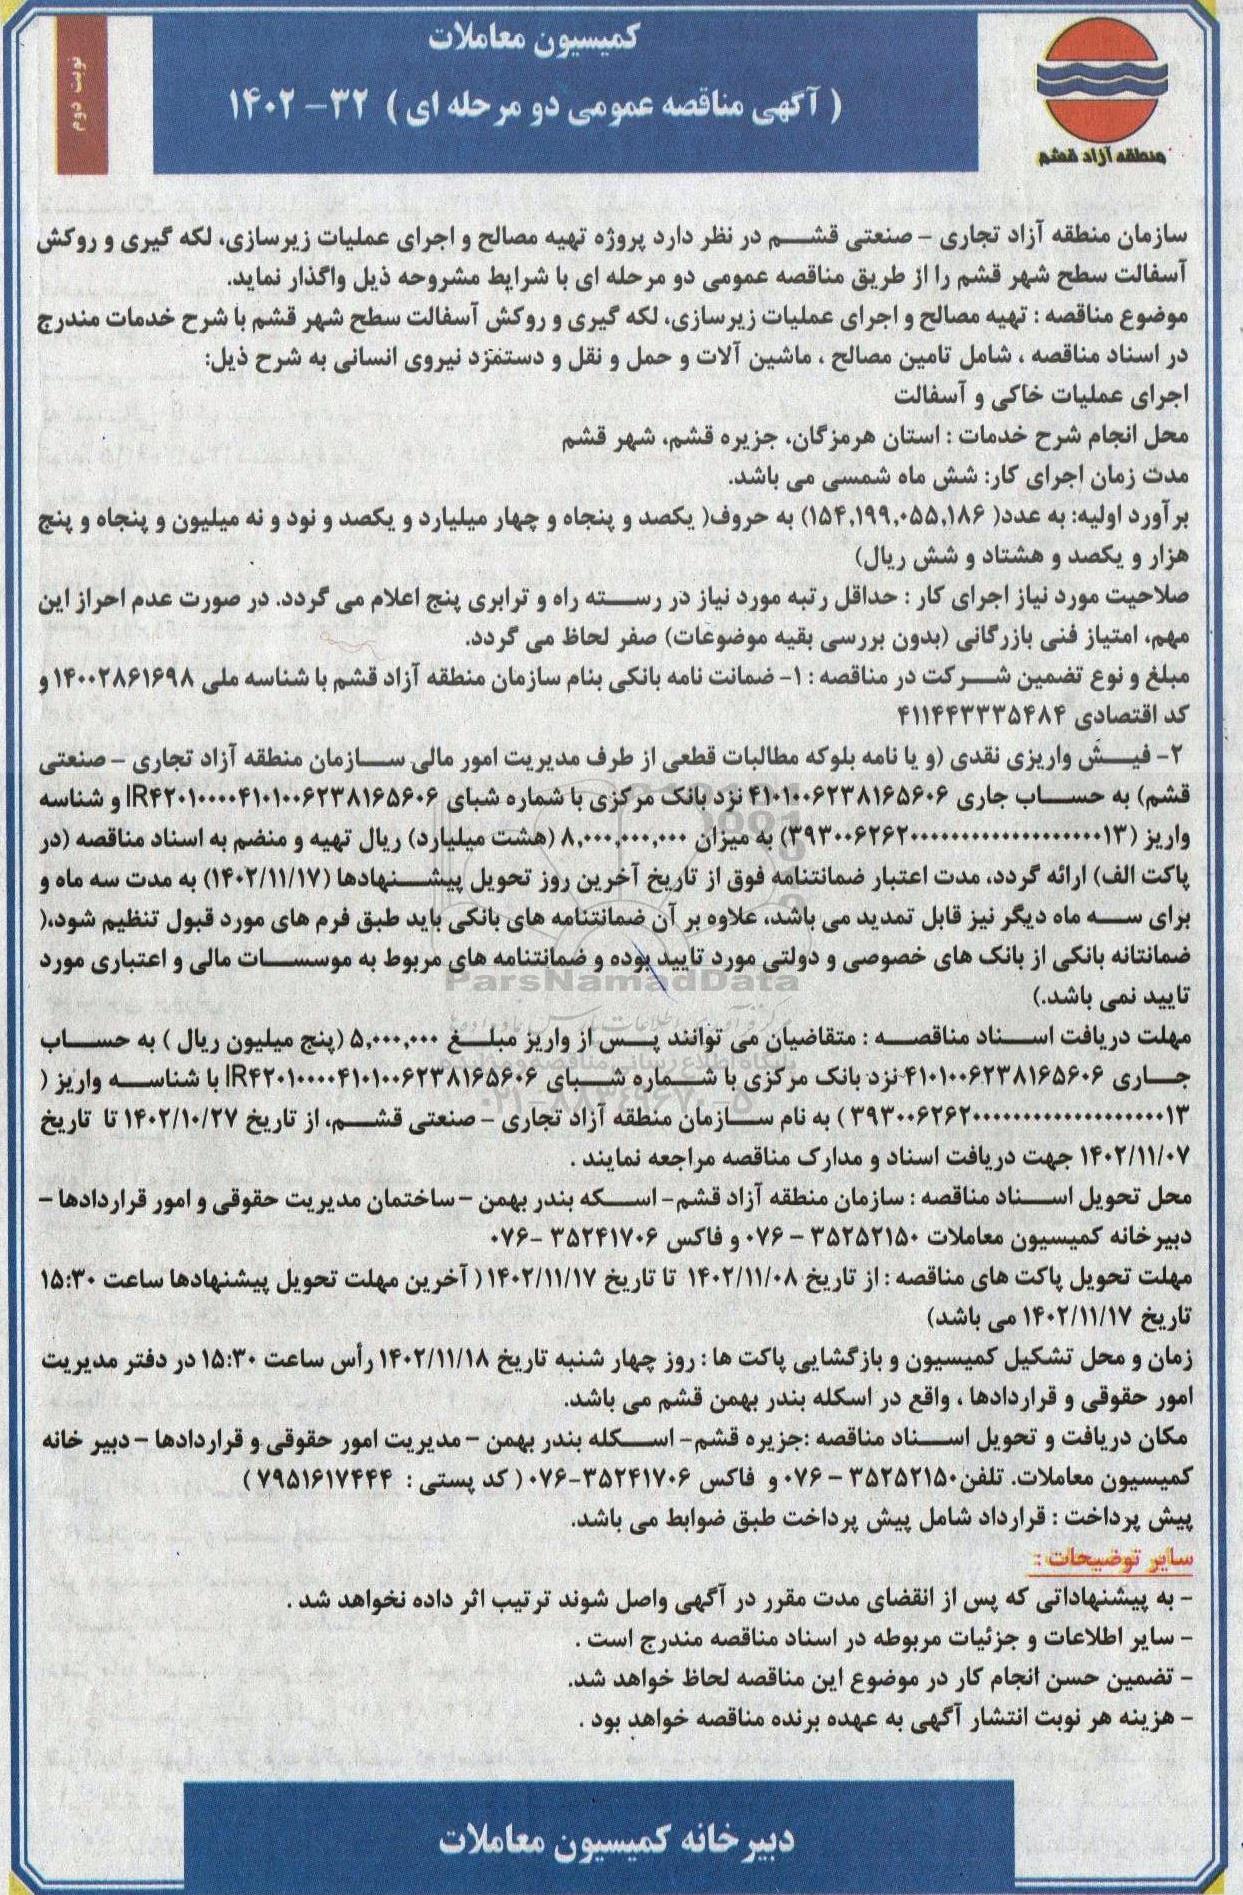 کمیسیون معاملات
( آگهی مناقصه عمومی دو مرحله ای ) ۳۲- ۱۴۰۲
نوبت دوم
منطقه آزاد قشم
سازمان منطقه آزاد تجاری - صنعتی قشم در نظر دارد پروژه تهیه مصالح و اجرای عملیات زیرسازی، لکه گیری و روکش
آسفالت سطح شهر قشم را از طریق مناقصه عمومی دو مرحله ای با شرایط مشروحه ذیل واگذار نماید.
موضوع مناقصه : تهیه مصالح و اجرای عملیات زیرسازی، لکه گیری و روکش آسفالت سطح شهر قشم با شرح خدمات مندرج
در اسناد مناقصه ، شامل تامین مصالح ، ماشین آلات و حمل و نقل و دستمزد نیروی انسانی به شرح ذیل:
اجرای عملیات خاکی و آسفالت
محل انجام شرح خدمات : استان هرمزگان، جزیره قشم، شهر قشم
مدت زمان اجرای کار: شش ماه شمسی می باشد.
برآورد اولیه: به عدد( ۱۵۴,۱۹۹,۰۵۵,۱۸۶) به حروف( یکصد و پنجاه و چهار میلیارد و یکصد و نود و نه میلیون و پنجاه و پنج
هزار و یکصد و هشتاد و شش ریال)
صلاحیت مورد نیاز اجرای کار : حداقل رتبه مورد نیاز در رسته راه و ترابری پنج اعلام می گردد. در صورت عدم احراز این
مهم، امتیاز فنی بازرگانی (بدون بررسی بقیه موضوعات) صفر لحاظ می گردد.
مبلغ و نوع تضمین شرکت در مناقصه : ۱- ضمانت نامه بانکی بنام سازمان منطقه آزاد قشم با شناسه ملی ۱۴۰۰۲۸۶۱۶۹۸ و
کد اقتصادی ۴۱۱۴۴۳۳۳۵۴۸۴
۲- فیش واریزی نقدی (و یا نامه بلوکه مطالبات قطعی از طرف مدیریت امور مالی سازمان منطقه آزاد تجاری - صنعتی
قشم) به حساب جاری ۴۱۰۱۰۰۶۲۳۸۱۶۵۶۰۶ نزد بانک مرکزی با شماره شبای IR۴۲۰۱۰۰۰۰۴۱۰۱۰۰۶۲۳۸۱۶۵۶۰۶ و شناسه
واریز (۳۹۳۰۰۶۲۶۲۰۰۰۰۰۰۰۰۰۰۰۰۰۰۰۰۰۰۰۱۳) به میزان ۸,۰۰۰,۰۰۰,۰۰۰ (هشت میلیارد) ریال تهیه و منضم به اسناد مناقصه (در
پاکت الف) ارائه گردد، مدت اعتبار ضمانتنامه فوق از تاریخ آخرین روز تحویل پیشنهادها (۱۴۰۲/۱۱/۱۷) به مدت سه ماه و
برای سه ماه دیگر نیز قابل تمدید می باشد، علاوه بر آن ضمانتنامه های بانکی باید طبق فرم های مورد قبول تنظیم شود،(
ضمانتانه بانکی از بانک های خصوصی و دولتی مورد تایید بوده و ضمانتنامه های مربوط به موسسات مالی و اعتباری مورد
تایید نمی باشد.)
مهلت دریافت اسناد مناقصه : متقاضیان می توانند پس از واریز مبلغ ۵,۰۰۰,۰۰۰ (پنج میلیون ریال ) به حساب
جاری ۴۱۰۱۰۰۶۲۳۸۱۶۵۶۰۶ نزد بانک مرکزی با شماره شبای IR۴۲۰۱۰۰۰۰۴۱۰۱۰۰۶۲۳۸۱۶۵۶۰۶ با شناسه واریز (
۳۹۳۰۰۶۲۶۲۰۰۰۰۰۰۰۰۰۰۰۰۰۰۰۰۰۰۰۱۳ ) به نام سازمان منطقه آزاد تجاری - صنعتی قشم، از تاریخ ۱۴۰۲/۱۰/۲۷ تا تاریخ
۱۴۰۲/۱۱/۰۷ جهت دریافت اسناد و مدارک مناقصه مراجعه نمایند .
محل تحویل اسناد مناقصه : سازمان منطقه آزاد قشم- اسکه بندر بهمن -ساختمان مدیریت حقوقی و امور قراردادها -
دبیرخانه کمیسیون معاملات ۳۵۲۵۲۱۵۰ - ۰۷۶ و فاکس ۳۵۲۴۱۷۰۶ -۰۷۶
مهلت تحویل پاکت های مناقصه : از تاریخ ۱۴۰۲/۱۱/۰۸ تا تاریخ ۱۴۰۲/۱۱/۱۷ ( آخرین مهلت تحویل پیشنهادها ساعت ۱۵:۳۰
تاریخ ۱۴۰۲/۱۱/۱۷ می باشد)
زمان و محل تشکیل کمیسیون و بازگشایی پاکت ها : روز چهار شنبه تاریخ ۱۴۰۲/۱۱/۱۸ رأس ساعت ۱۵:۳۰ در دفتر مدیریت
امور حقوقی و قراردادها ، واقع در اسکله بندر بهمن قشم می باشد.
مکان دریافت و تحویل اسناد مناقصه :جزیره قشم- اسکله بندر بهمن - مدیریت امور حقوقی و قراردادها - دبیر خانه
کمیسیون معاملات. تلفن۳۵۲۵۲۱۵۰ - ۰۷۶ و فاکس ۳۵۲۴۱۷۰۶-۰۷۶ ( کد پستی : ۷۹۵۱۶۱۷۴۴۴ )
پیش پرداخت : قرارداد شامل پیش پرداخت طبق ضوابط می باشد.
سایر توضیحات :
- به پیشنهاداتی که پس از انقضای مدت مقرر در آگهی واصل شوند ترتیب اثر داده نخواهد شد .
- سایر اطلاعات و جزئیات مربوطه در اسناد مناقصه مندرج است .
- تضمین حسن انجام کار در موضوع این مناقصه لحاظ خواهد شد.
- هزینه هر نوبت انتشار آگهی به عهده برنده مناقصه خواهد بود .
دبیرخانه کمیسیون معاملات
ParsNamadData
۰۲۱-۸۸۳۴۹۶۷۰-۵